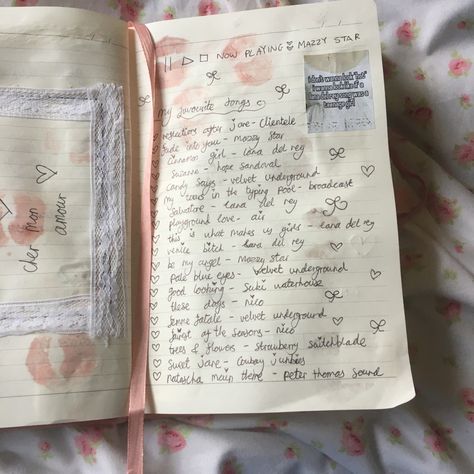 cher mon
amour
NOW PLAYING MAZZY STAR
i don't wanna look "hot"
i wanna look like if a
lana del rey song was a
teenage girl
my favourite songs
reflections after jane - Clientele
fade into you - mazzy star
Cinnamon girl - lana del rey
Suzanne - hope sandoval
Candy Says - velvet underground
my in the typing pool - broadcast
Salvatore - lana del rey
playground love - air
this is what makes us girls - lana del rey
venice bitch - lana del rey
be my angel - mazzy star
pale blue eyes - velvet underground
good looking - Suki waterhouse
these days - nico
femme fatale - velvet underground
of the seasons - nico
trees & flowers - strawberry switchblade
sweet jane - cowboy junkies
natascha main theme - peter thomas sound